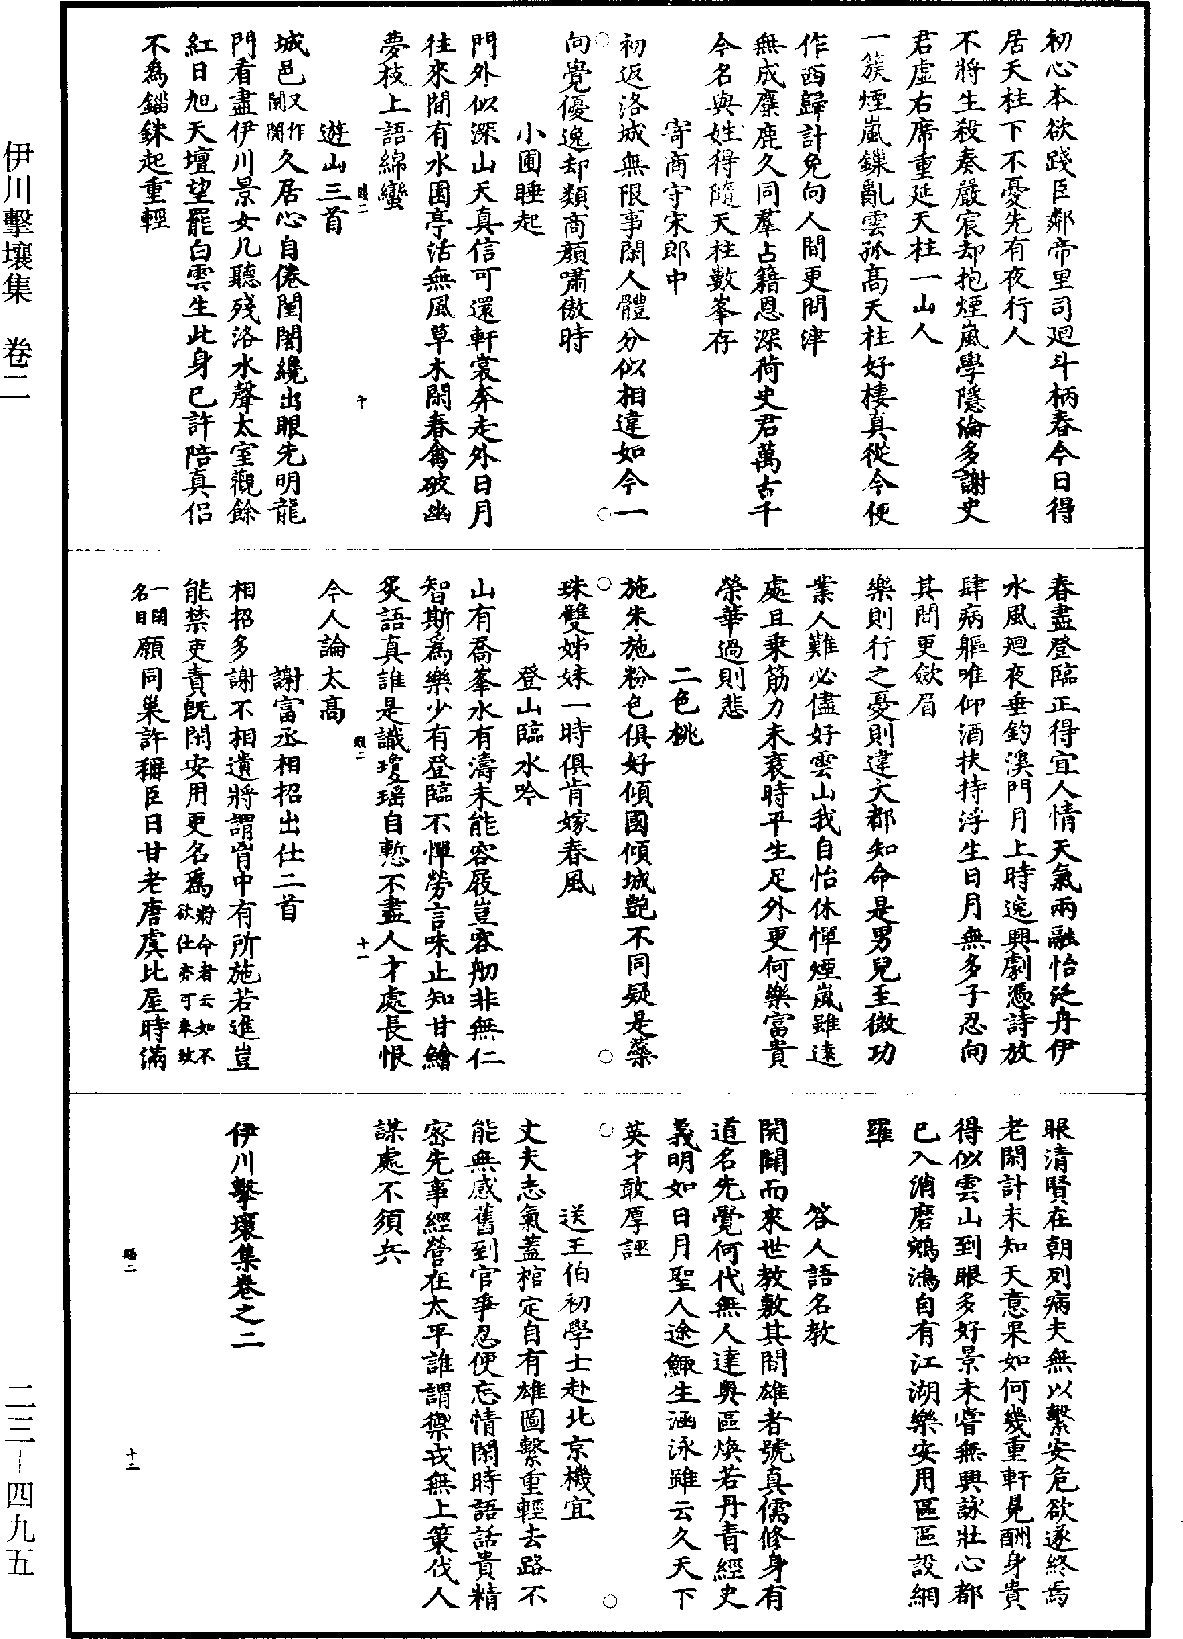 初心本欲踐臣鄰帝里司廻斗柄春今日得
居天柱下不憂先有夜行人
不將生殺奏嚴宸却抱煙嵐學隱淪多謝史
君虛右席重延天柱一山人
一簇煙嵐鏁亂雲孤髙天柱好棲真從今便
作西歸計免向人間更問津
無成麋鹿久同羣占籍恩深荷史君萬古千
今名與姓得隨天柱數峯存
寄商守宋郎中
初返洛城無限事閑人體分似相違如今一
向覺優逸却類商顔嘯傲時
小圃睡起
門外似深山天真信可還軒裳奔走外日月
往來間有水園亭活無風草木閑春禽破幽
夢枝上語綿蠻
賤二
午
遊山三首
城邑又作闤闠久居心自倦闉闍纔出眼先明龍
門看盡伊川景女几聽殘洛水聲太室觀餘
紅日旭天壇望罷白雲生此身已許陪真侶
不為錙銖起重輕
春盡登臨正得宜人情天氣兩融怡泛舟伊
水風廻夜垂釣溪門月上時逸興劇憑詩放
肆病軀唯仰酒扶持浮生日月無多子忍向
其間更歛眉
樂則行之憂則違大都知命是男兒至微功
業人難必儘好雲山我自怡休憚煙嵐雖遠
處且乗筋力未衰時平生足外更何樂富貴
榮華過則悲
二色桃
施朱施粉色俱好傾國傾城艶不同疑是蘂
珠雙姊妹一時俱肯嫁春風
登山臨水吟
山有喬峯水有濤未能容屐豈容舠非無仁
智斯爲樂少有登臨不憚勞言味止知甘鱠
炙語真誰是識瓊瑶自慙不盡人才處長恨
十一
今人論太髙
謝富丞相招出仕二首
相招多謝不相遺將謂胷中有所施若進豈
能禁吏責旣閑安用更名爲將命者云如不欲仕亦可奉致
一閑名目願同巢許稱臣日甘老唐虞比屋時滿
眼清賢在朝列病夫無以繫安危欲遂終焉
老閑計未知天意果如何幾重軒冕酬身貴
得似雲山到眼多好景未嘗無興詠壯心都
已入消磨鵷鴻自有江湖樂安用區區設網
羅
答人語名教
開闢而來世教敷其間雄者號真儒修身有
道名先覺何代無人達奥區煥若丹青經史
義明如日月聖人途鯫生涵泳雖云久天下
英才敢厚誣
送王伯初學士赴北京機宜
丈夫志氣蓋棺定自有雄圖繫重輕去路不
能無感舊到官爭忍便忘情閑時語話貴精
宻先事經營在太平誰謂禦戎無上策伐人
謀處不須兵
伊川擊壤集卷之二
十二
伊川擊壤集　卷二
二三－四九五